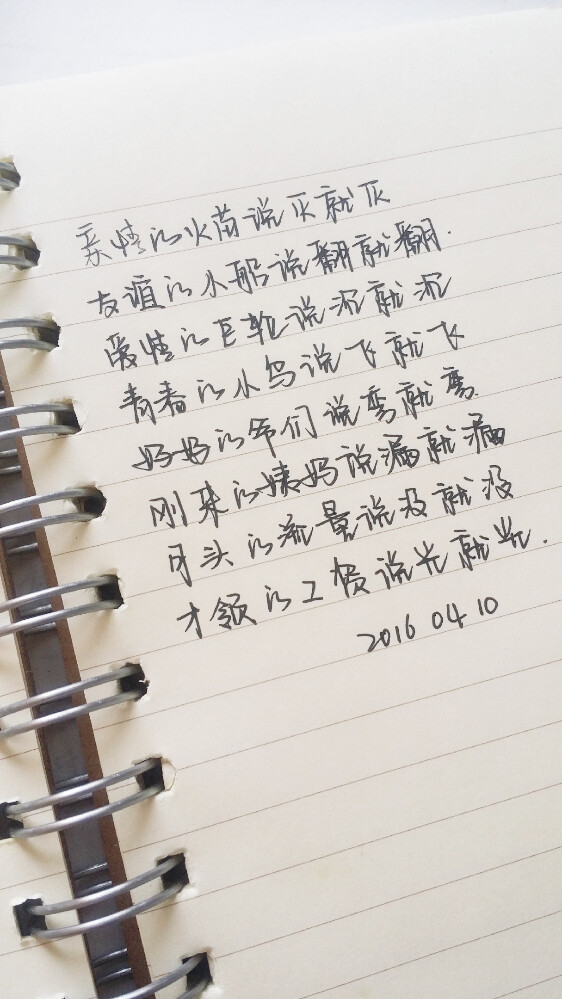 爱情的火苗说灭就灭
友谊的小船说翻就翻.
爱情的巨轮说沉就沉
青春的小鸟说飞就飞
好好的爷们说弯就弯
刚来的姨妈说漏就漏
月头的流量说没就没
才领的工资说光就光.
2016 04 10